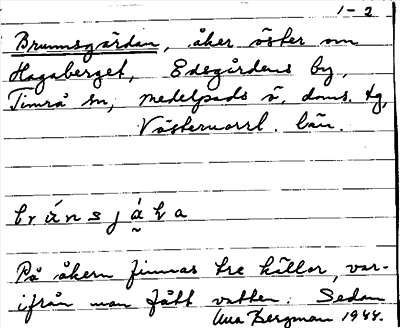 1-2
Brunnsgärdan, åker öster om
Hagaberget, Edsgårdens by,
Timrå sn, Medelpads ö. doms. tg,
Västernorrl. län.
På åkern finnas tre källor, var-
ifrån man fått vatten. Sedan
Bergman 1944.